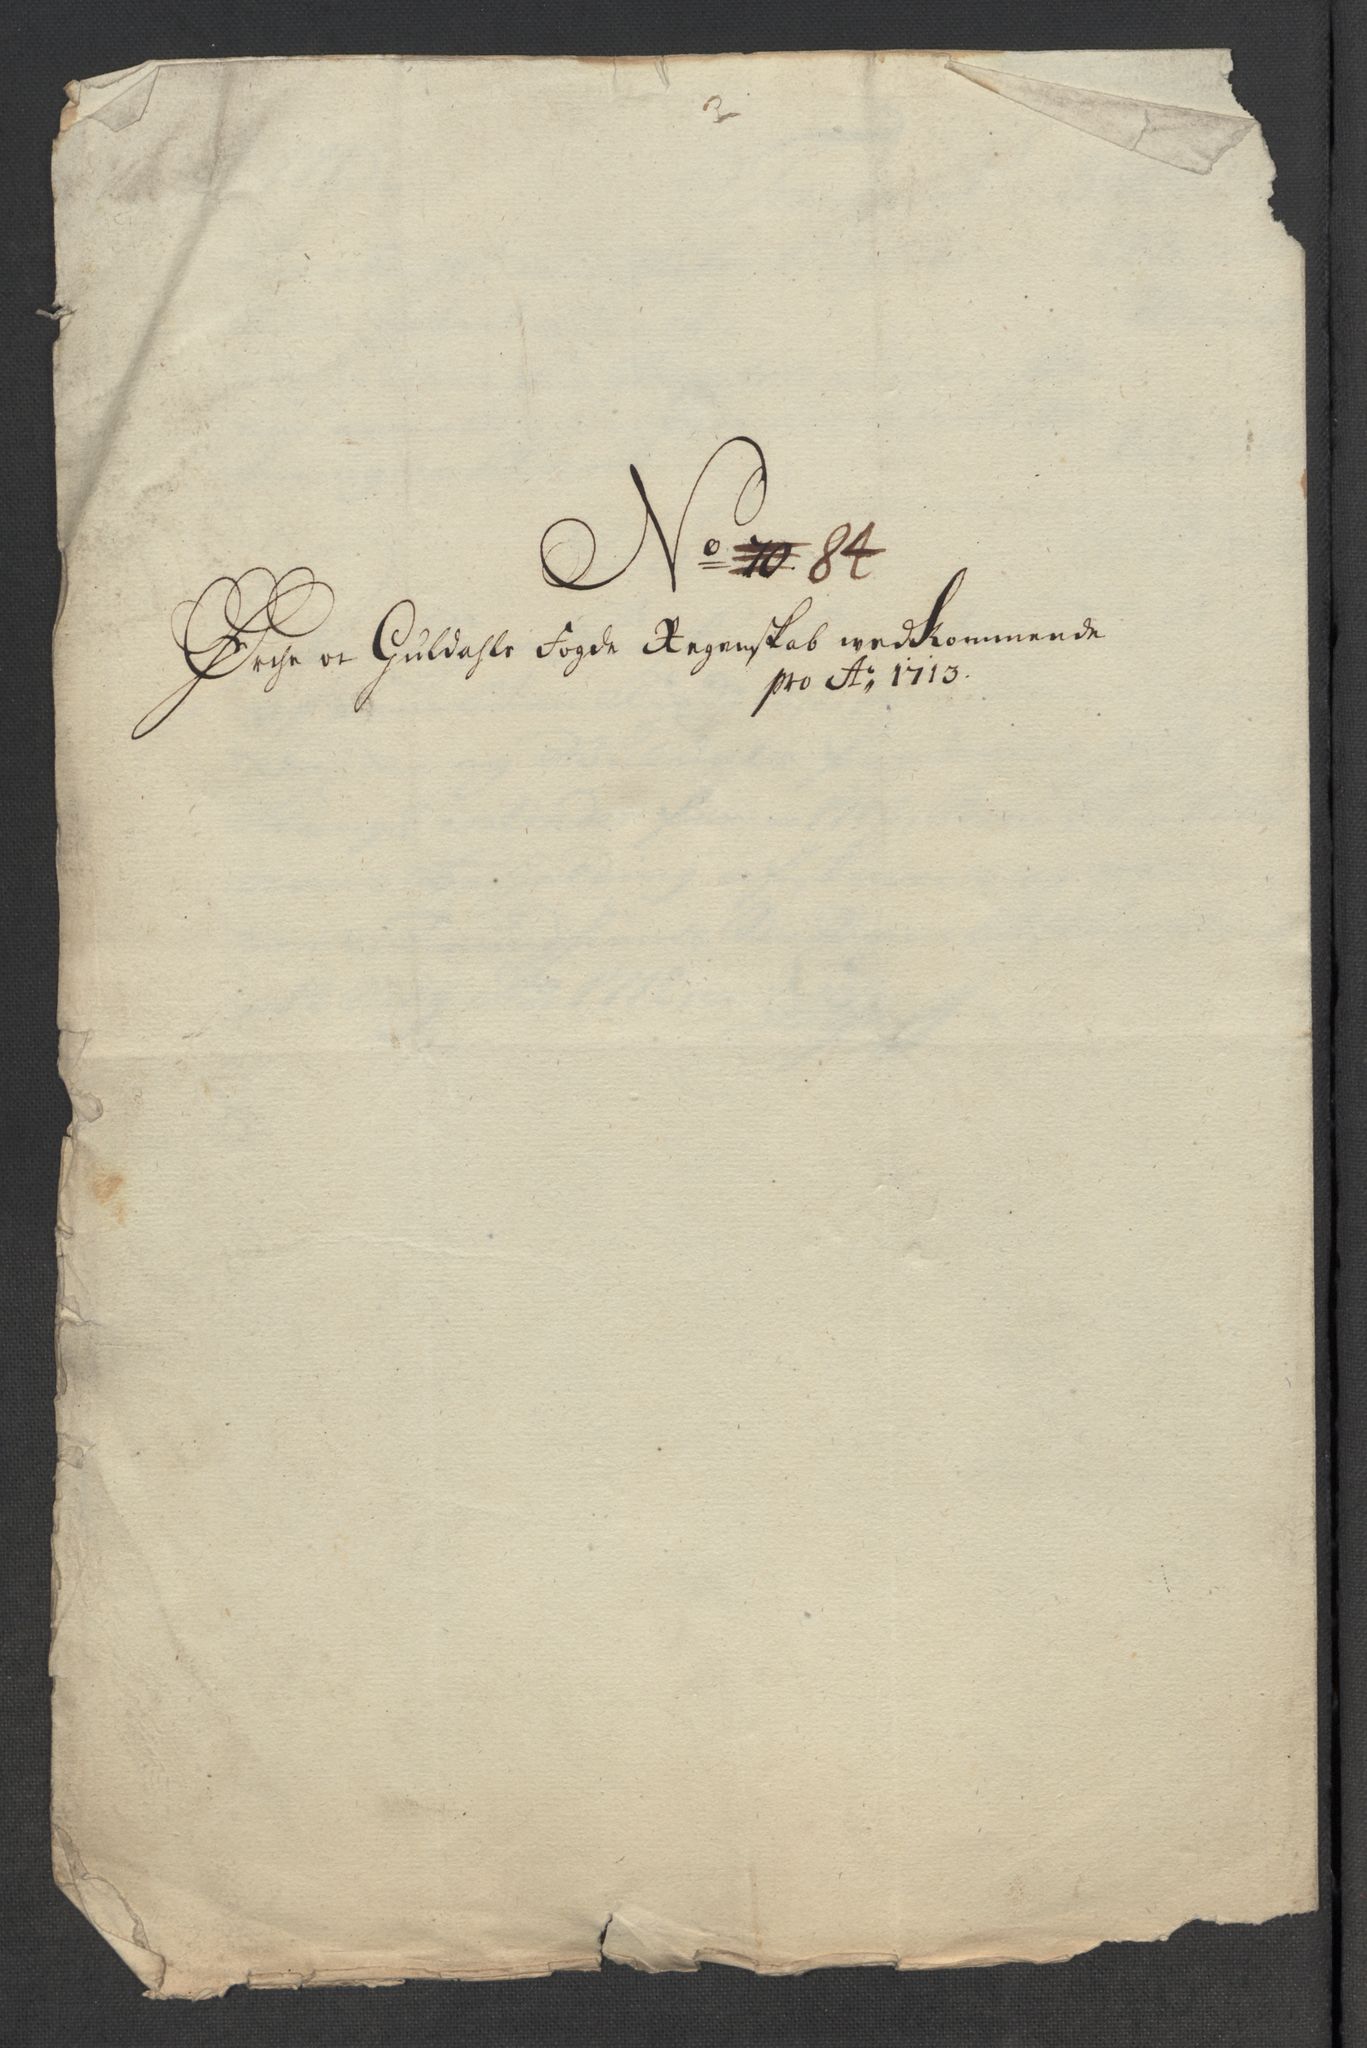 No 70. 84
Ørche oc Guldahls Fogde Regenskab wedkommende
pro Ao 1713.